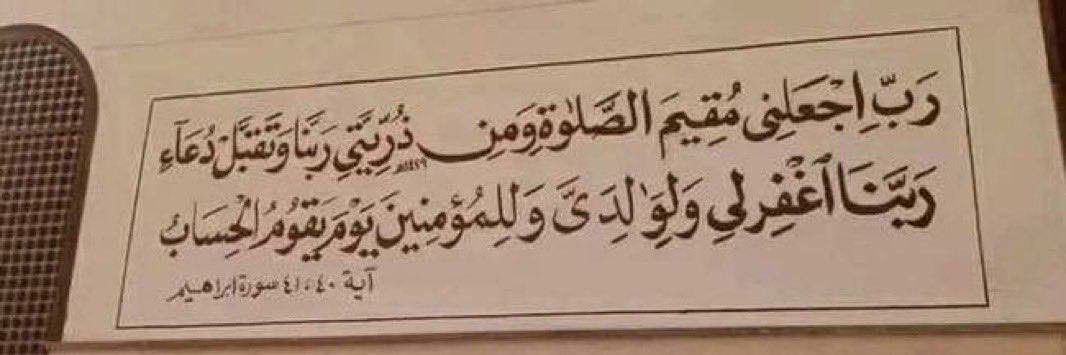 رَبِّ اجْعَلْنِى مُقِيمَ الصَّلَوٰةِ وَمِن ذُرِّيَّتِي رَبَّنَا وَتَقَبَّلْ دُعَآءِ
رَبَّنَا ٱغْفِرْ لِي وَلِوَٰلِدَىَّ وَلِلْمُؤْمِنِينَ يَوْمَ يَقُومُ الْحِسَابُ
آية ٤٠، ٤١ سورة ابراهيم